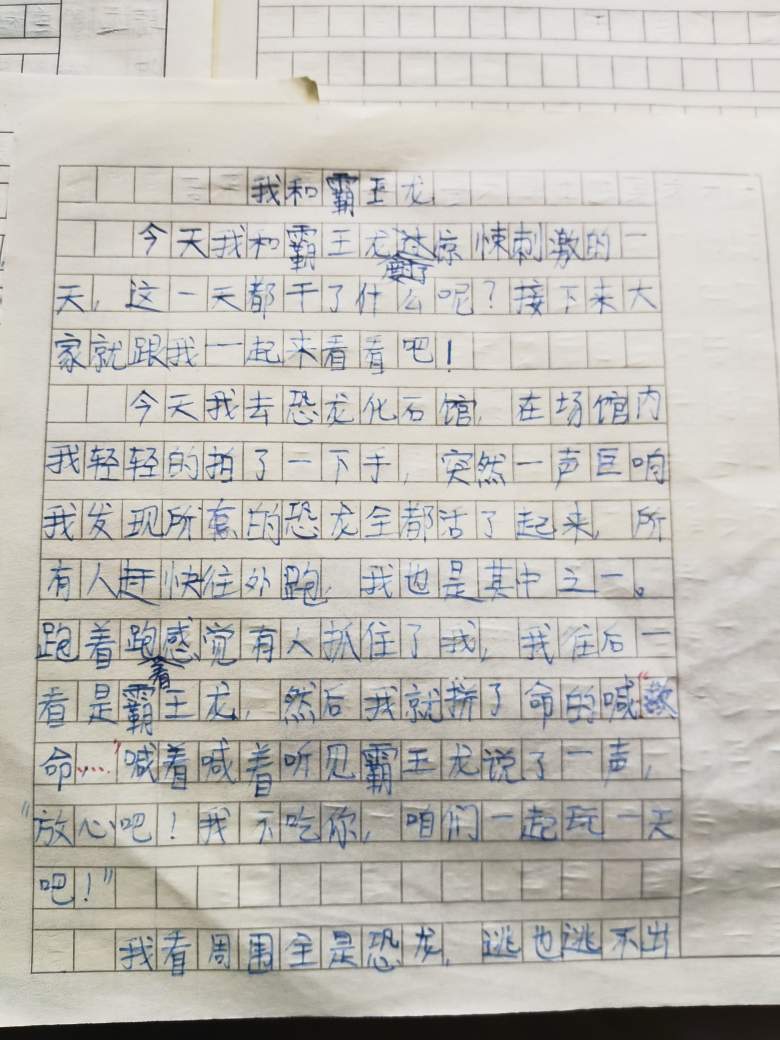 我和霸王龙
今天我和霸王龙过了惊悚刺激的一
天，这一天都干了什么呢？接下来大
家就跟我一起来看看吧！
今天我去恐龙化石馆，在场馆内
我轻轻的拍了一下手，突然一声巨响
我发现所有的恐龙全都活了起来，所
有人赶快往外跑，我也是其中之一。
跑着跑着感觉有人抓住了我，我往后一
看是霸王龙，然后我就拼了命的喊“救
命……”喊着喊着听见霸王龙说了一声，
“放心吧！我不吃你，咱们一起玩一天
吧！”
我看周围全是恐龙，逃也逃不出